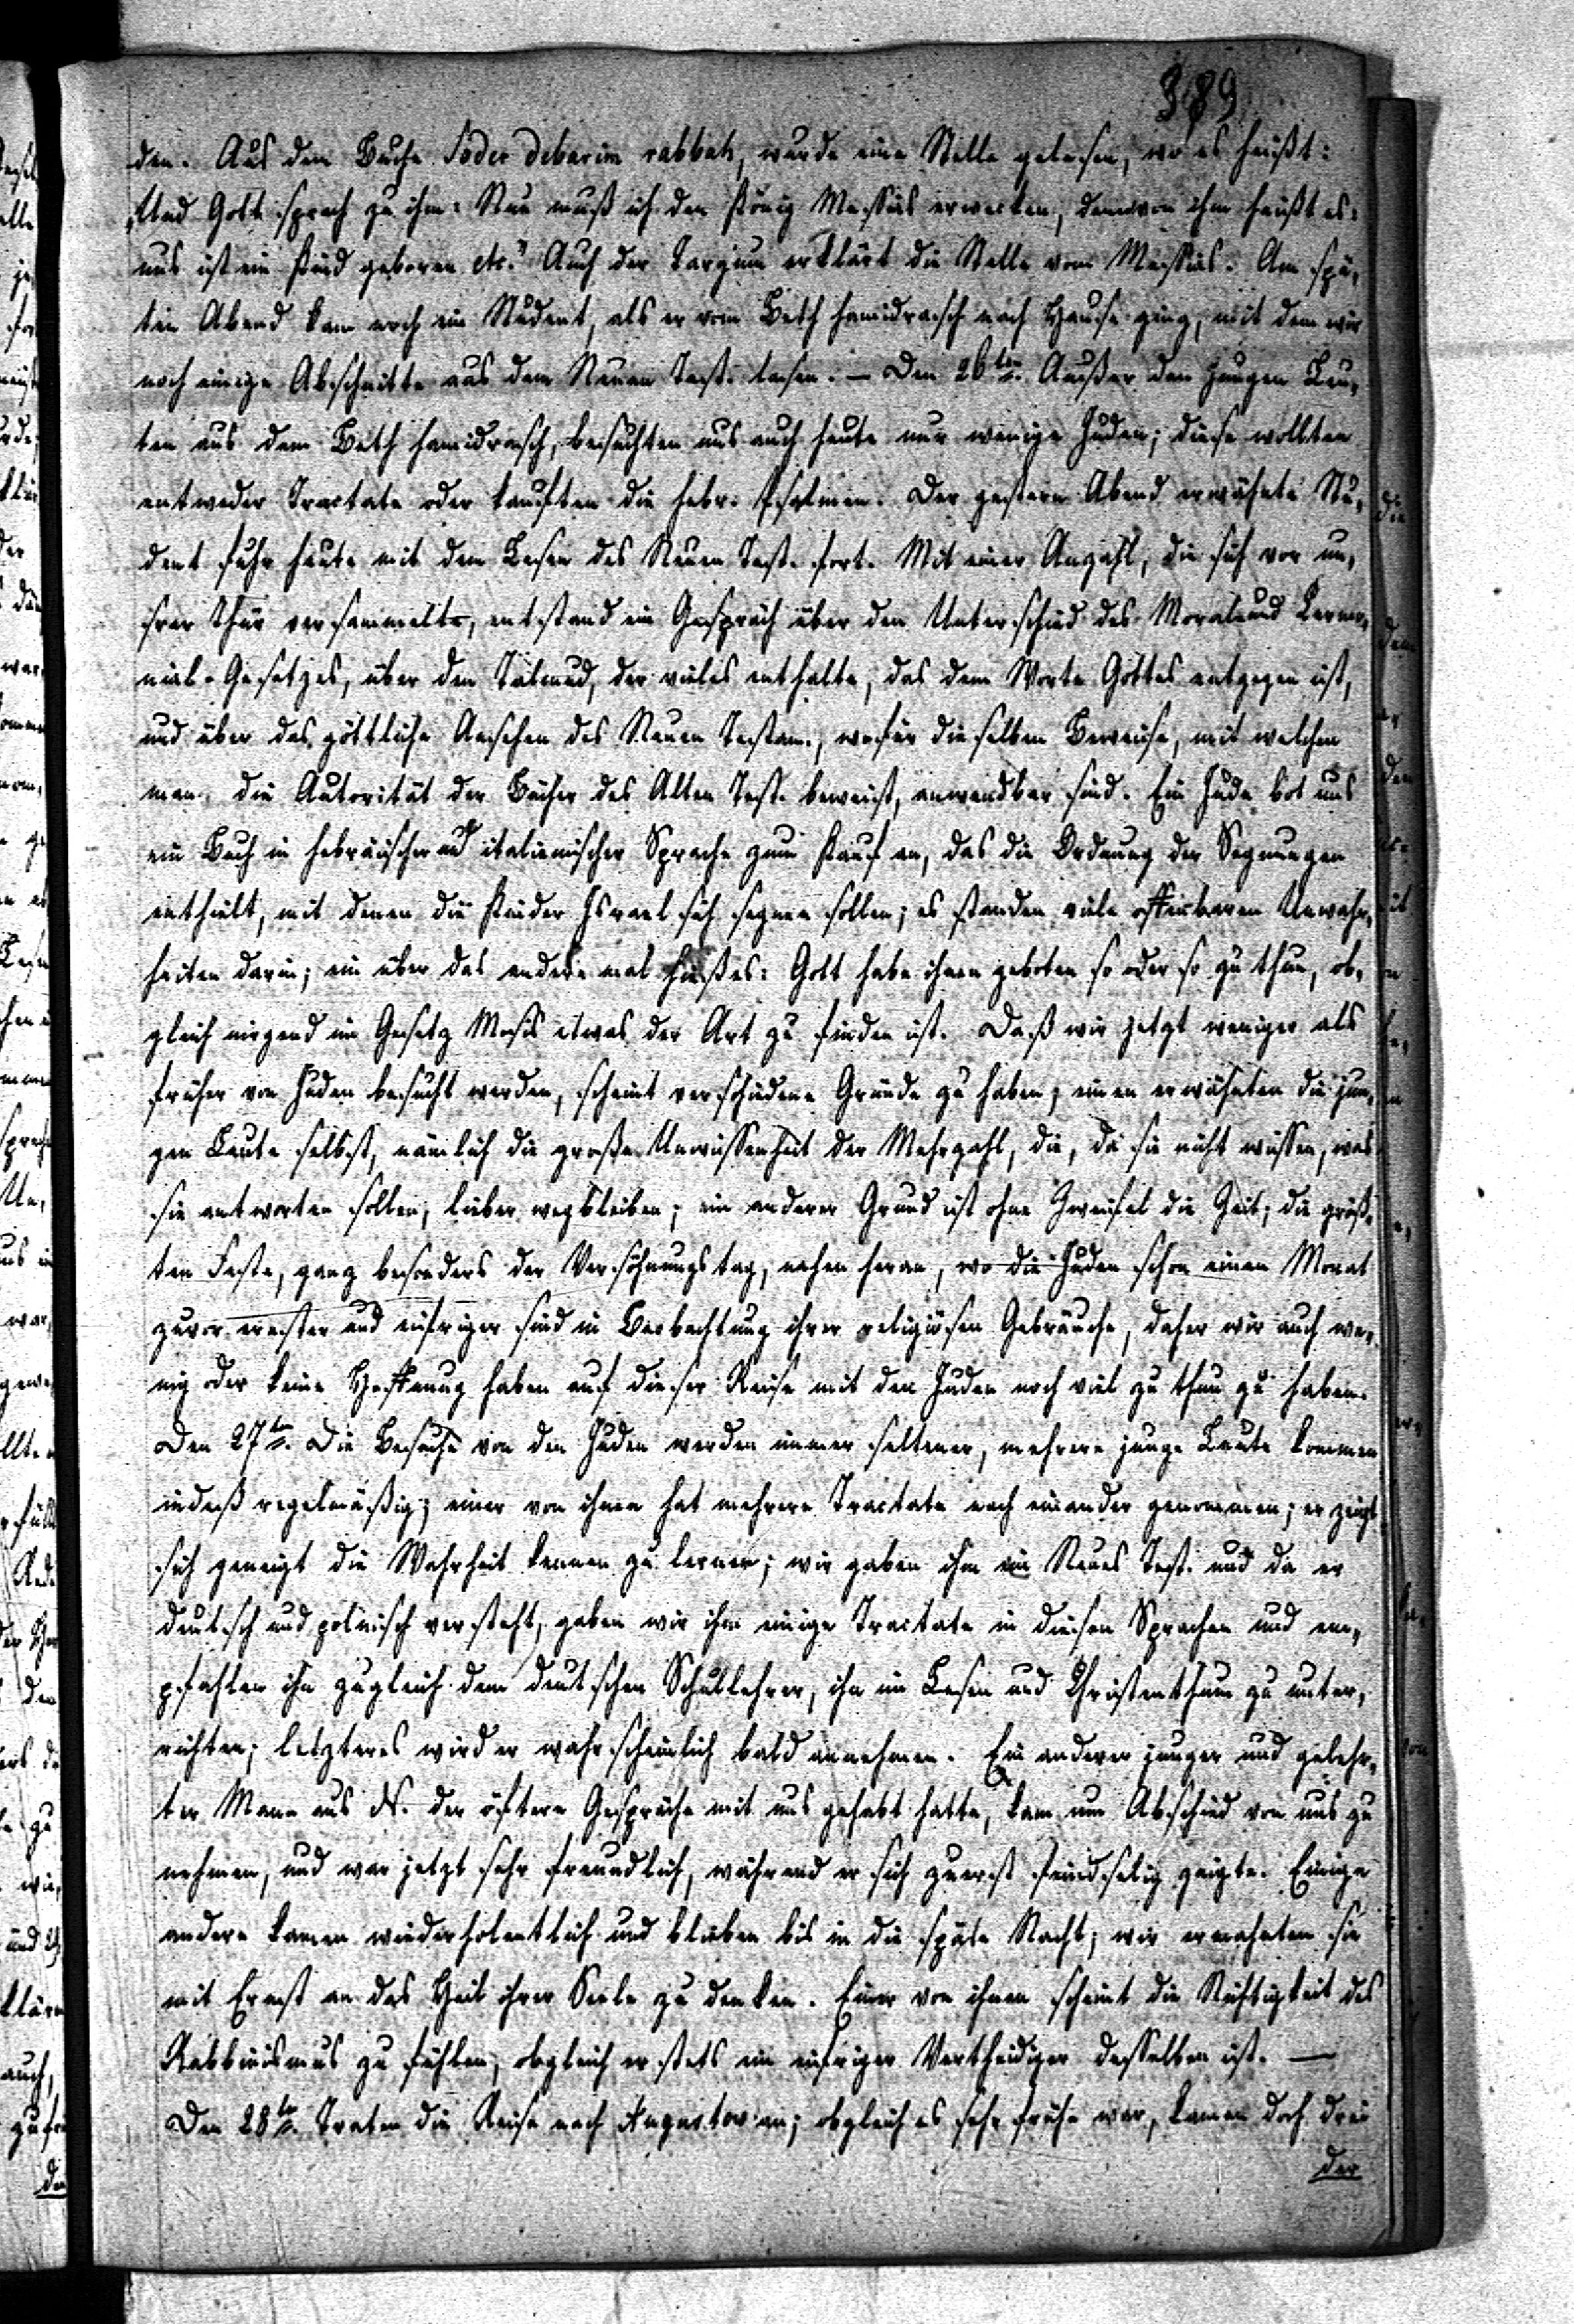 389
den. Aus dem Buche Soder debarim rabbah, wurde eine Stelle gelesen, wo es heißt:
„Und Gott sprach zu ihm: Nun muß ich den König Messias erwecken, denn von ihm heißt es:
uns ist ein Kind geboren etc." Auch der Targum erklärt die Stelle vom Messias. Am spä,
ten Abend kam noch ein Student, als er vom Beth hamidrasch nach Hause ging, mit dem wir
noch einige Abschnitte aus dem Neuen Test. lasen. — Den 26ten. Außer den jungen Leu,
ten aus dem Beth hamidrasch, besuchten uns auch heute nur wenige Juden; diese wollten
entweder Tractate oder kauften die hebr. Psalmen. Der gestern Abend erwähnte Stu,
dent fuhr heute mit dem Lesen des Neuen Test. fort. Mit einer Anzahl, die sich vor un,
srer Thür versammelte, entstand ein Gespräch über den Unterschied des Moral und Ceremo,
nial-Gesetzes, über den Talmud, der vieles enthalte, das dem Worte Gottes entgegen ist,
und über das göttliche Ansehen des Neuen Testam., wofür dieselben Beweise, mit welchen
man die Autorität der Bücher des Alten Test. beweist, anwendbar sind. Ein Jude bot uns
ein Buch in hebräischer und italienischer Sprache zum Kauf an, das die Ordnung der Segnungen
enthielt, mit denen die Kinder Israel sich segnen sollen; es standen viele offenbaren Unwahr,
heiten darin; ein über das andere mal hieß es: Gott habe ihnen geboten so oder so zu thun, ob,
gleich nirgend im Gesetz Mosis etwas der Art zu finden ist. Daß wir jetzt weniger als
früher von Juden besucht werden, scheint verschiedene Gründe zu haben; einen erwähnten die jun,
gen Leute selbst, nämlich die große Unwissenheit der Mehrzahl, die, da sie nicht wissen, was
sie antworten sollen, lieber wegbleiben; ein anderer Grund ist ohne Zweifel die Zeit; die größ,
ten Feste, ganz besonders der Versöhnungstag, nahen heran, wo die Juden schon einen Monat
zuvor ernster und eifriger sind in Beobachtung ihrer religiösen Gebräuche, daher wir auch we,
nig oder keine Hoffnung haben auf dieser Reise mit den Juden noch viel zu thun zu haben.
Den 27ten. Die Besuche von den Juden werden immer seltener, mehrere junge Leute kommen
indeß regelmäßig; einer von ihnen hat mehrere Tractate nach einander genommen; er zeigt
sich geneigt die Wahrheit kennen zu lernen; wir gaben ihm ein Neues Test. und da er
deutsch und polnisch versteht, gaben wir ihm einige Tractate in diesen Sprachen und em,
pfahlen ihn zugleich dem deutschen Schullehrer, ihn im Lesen und Christenthum zu unter,
richten; letzteres wird er wahrscheinlich bald annehmen. Ein anderer junger und gelehr,
ter Mann aus N. der öftere Gespräche mit uns gehabt hatte, kam um Abschied von uns zu
nehmen, und war jetzt sehr freundlich, während er sich zuerst feindselig zeigte. Einige
andere kamen wiederholentlich und blieben bis in die späte Nacht; wir ermahnten sie
mit Ernst an das Heil ihrer Seele zu denken. Einer von ihnen scheint die Nichtigkeit des
Rabbinismus zu fühlen, obgleich er stets ein eifriger Vertheidiger desselben ist. —
Den 28ten. Traten die Reise nach Augustow an; obgleich es sehr frühe war, kamen doch drei
der